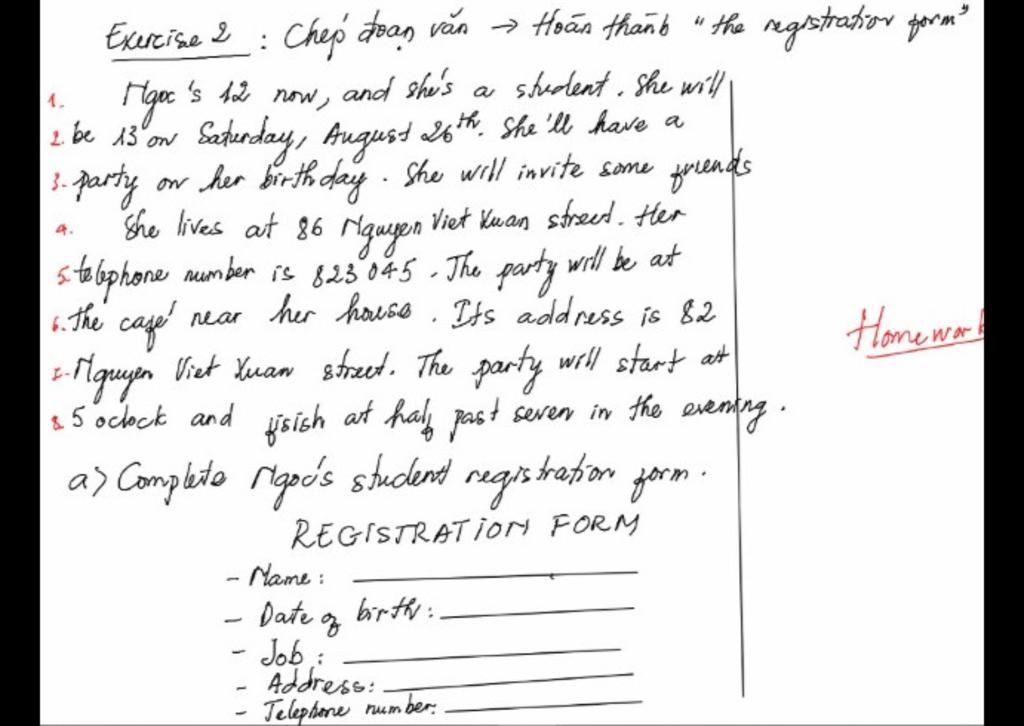 Exercise 2 : Chép đoạn văn → Hoàn thành "the registration form"
1. Ngoc's 12 now, and she's a student. She will
2. be 13 on Saturday, August 26th. She'll have a
3. party on her birthday. She will invite some friends
4. She lives at 86 Nguyen Viet Xuan street. Her
5. telephone number is 823 045. The party will be at
6. the café near her house. Its address is 82
7. Nguyen Viet Xuan street. The party will start at
8. 5 oclock and fisish at half past seven in the evening.
Homework
a) Complete Ngoc's student registration form.
REGISTRATION FORM
- Name:
- Date of birth:
- Job :
- Address:
- Telephone number: